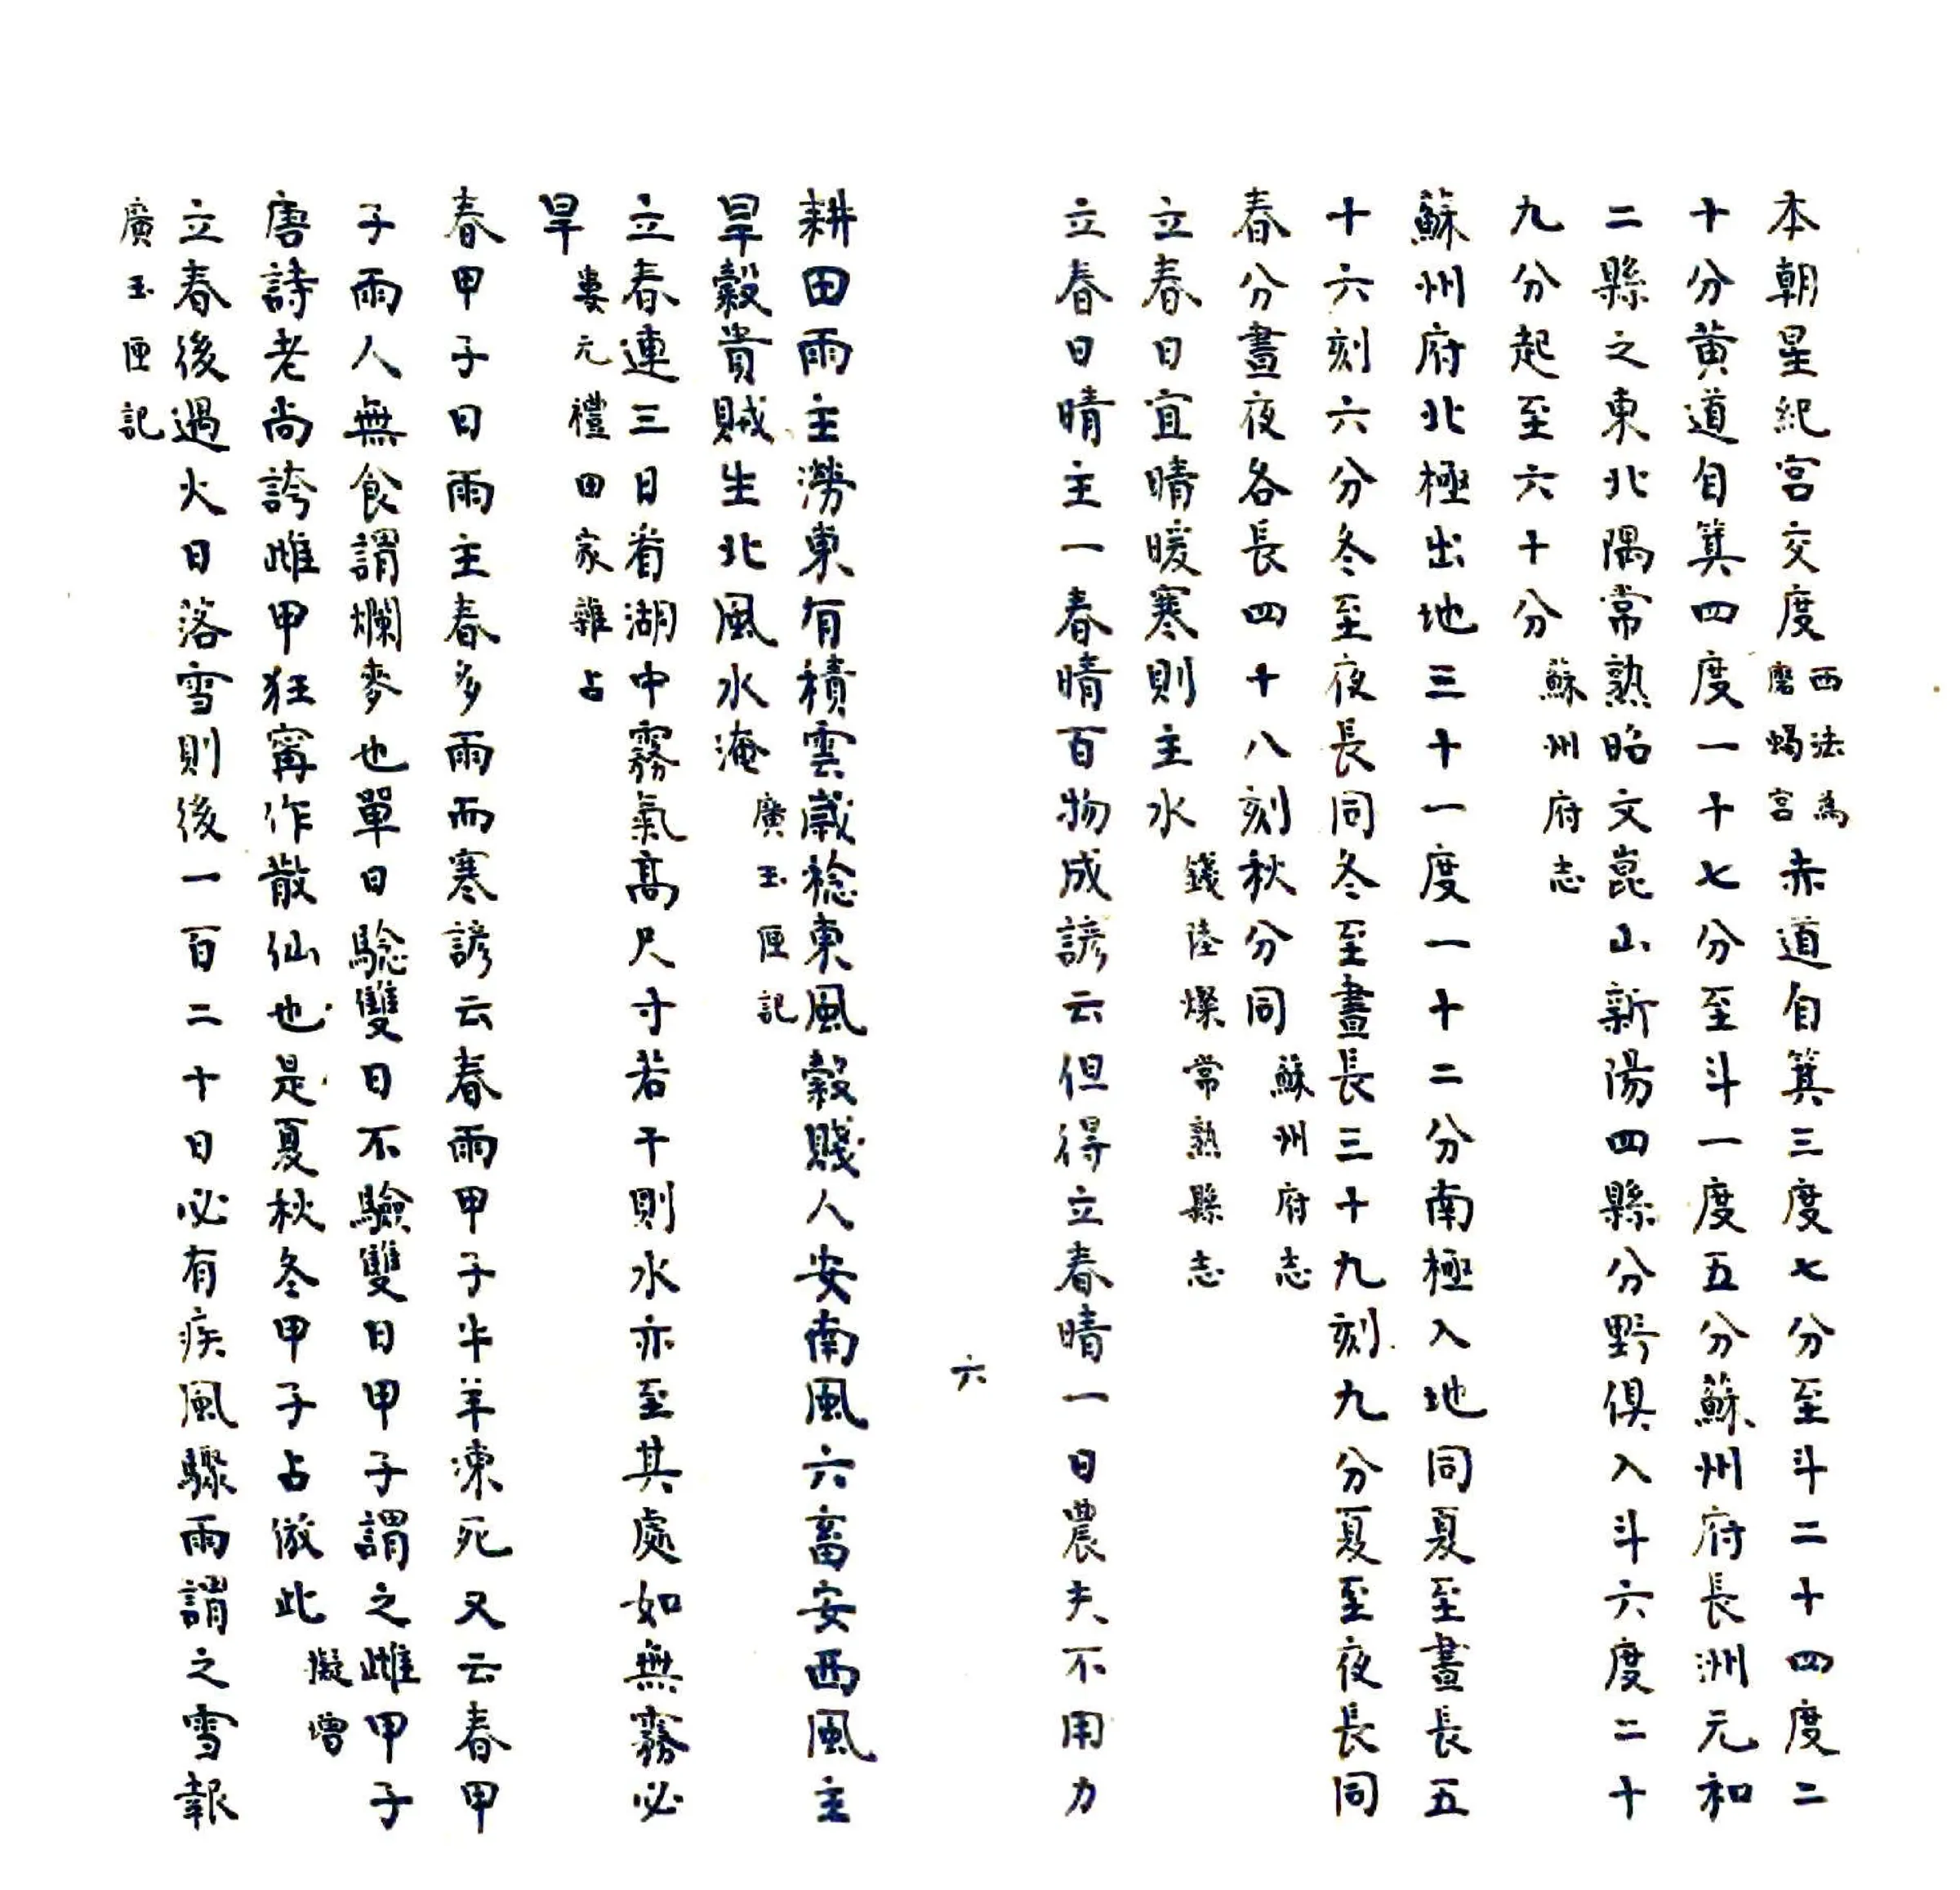 本朝星紀宮交度西法為磨蝎宮赤道自箕三度七分至斗二十四度二
十分黄道自箕四度一十七分至斗一度五分蘇州府長洲元和
二縣之東北隅常熟昭文崑山新陽四縣分野俱入斗六度二十
九分起至六十分蘇州府志
蘇州府北極出地三十一度一十二分南極入地同夏至晝長五
十六刻六分冬至夜長同冬至晝長三十九刻九分夏至夜長同
春分晝夜各長四十八刻秋分同蘇州府志
立春日宜晴暖寒則主水錢陸燦常熟縣志
立春日晴主一春晴百物成諺云但得立春晴一日農夫不用力
六
耕田雨主澇東有積雲歲稔東風穀賤人安南風六畜安西風主
旱穀貴賊生北風水淹廣玉匣記
立春連三日看湖中霧氣高尺寸若干則水亦至其處如無霧必
旱婁元禮田家雜占
春甲子日雨主春多雨而寒諺云春雨甲子牛羊凍死又云春甲
子雨人無食謂爛麥也單日驗雙日不驗雙日甲子謂之雌甲子
唐詩老尚誇雌甲狂甯作散仙也是夏秋冬甲子占倣此擬增
立春後遇火日落雪則後一百二十日必有疾風驟雨謂之雪報
廣玉匣記